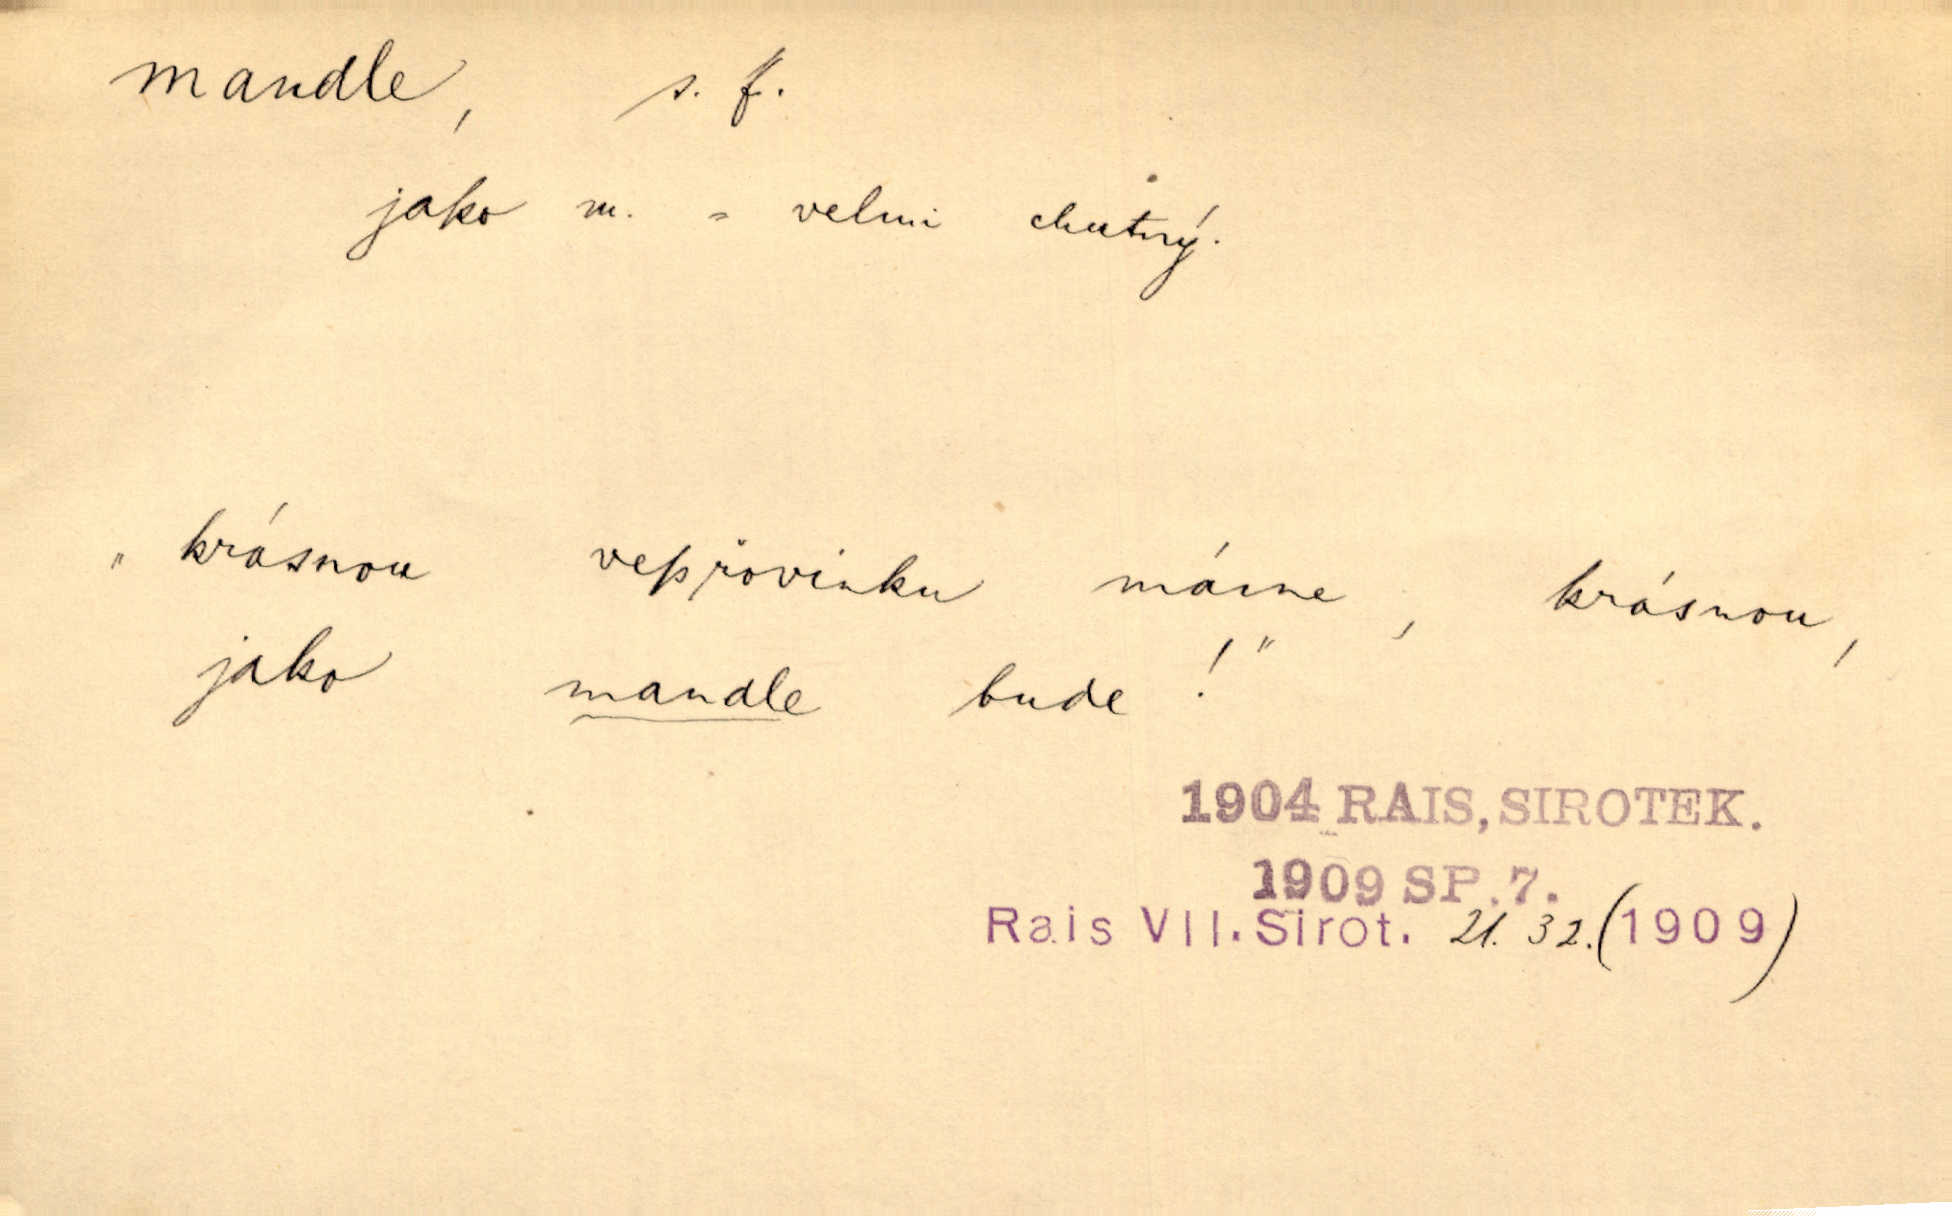 mandle, s. f.
jako m. = velmi chutný.
„krásnou vepřovinku máme, krásnou,
jako mandle bude!"
1904 RAIS, SIROTEK.
1909 SP. 7.
Rais VII. Sirot. 21. 32. (1909)